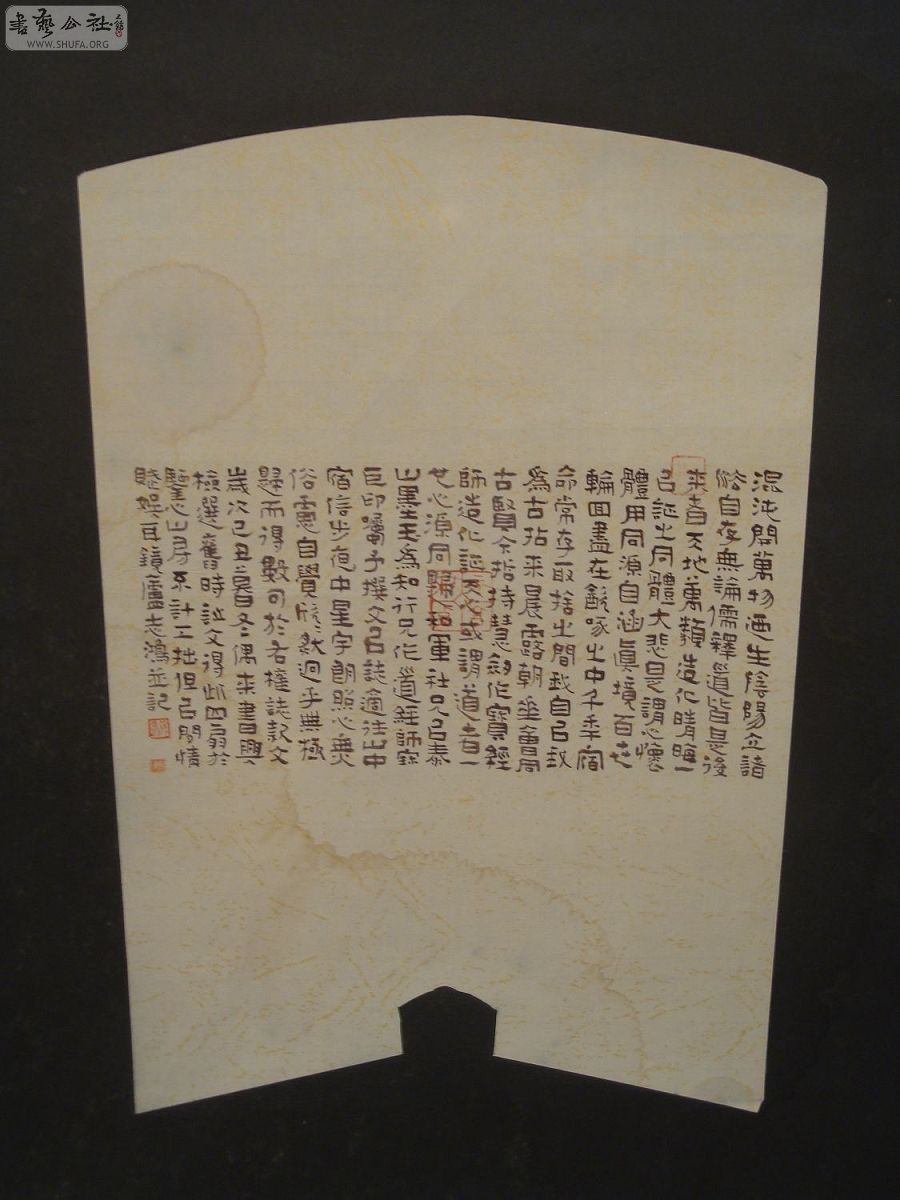 書藝公社
WWW.SHUFA.ORG
混沌開萬物演生陰陽立諸
說自存無論儒釋道皆是後
來者天地萬類造化晴晦一
已誕生同體大悲是謂心懷
體用同源自涵真境百世
輪回盡在飲啄之中千秉宿
命常存取捨之間我自己故
為古拈來晨露朝
古賢今指持慧劍作寶經
師造化誕天或謂道者一
世心源同歸和軍社兄以泰
山墨玉為知行兄作道經師寶
巨印囑予撰文以誌適往山中
宿信步夜中星宇朗照心無
俗慮自覺欣然迥乎無極
歸而得數句於右權誌款文
歲次己丑嚴冬偶來書興
檢選舊時試文得此四扇於
鑒心山房不計工拙但以閑情
賤娛耳鏡廬志鴻並記